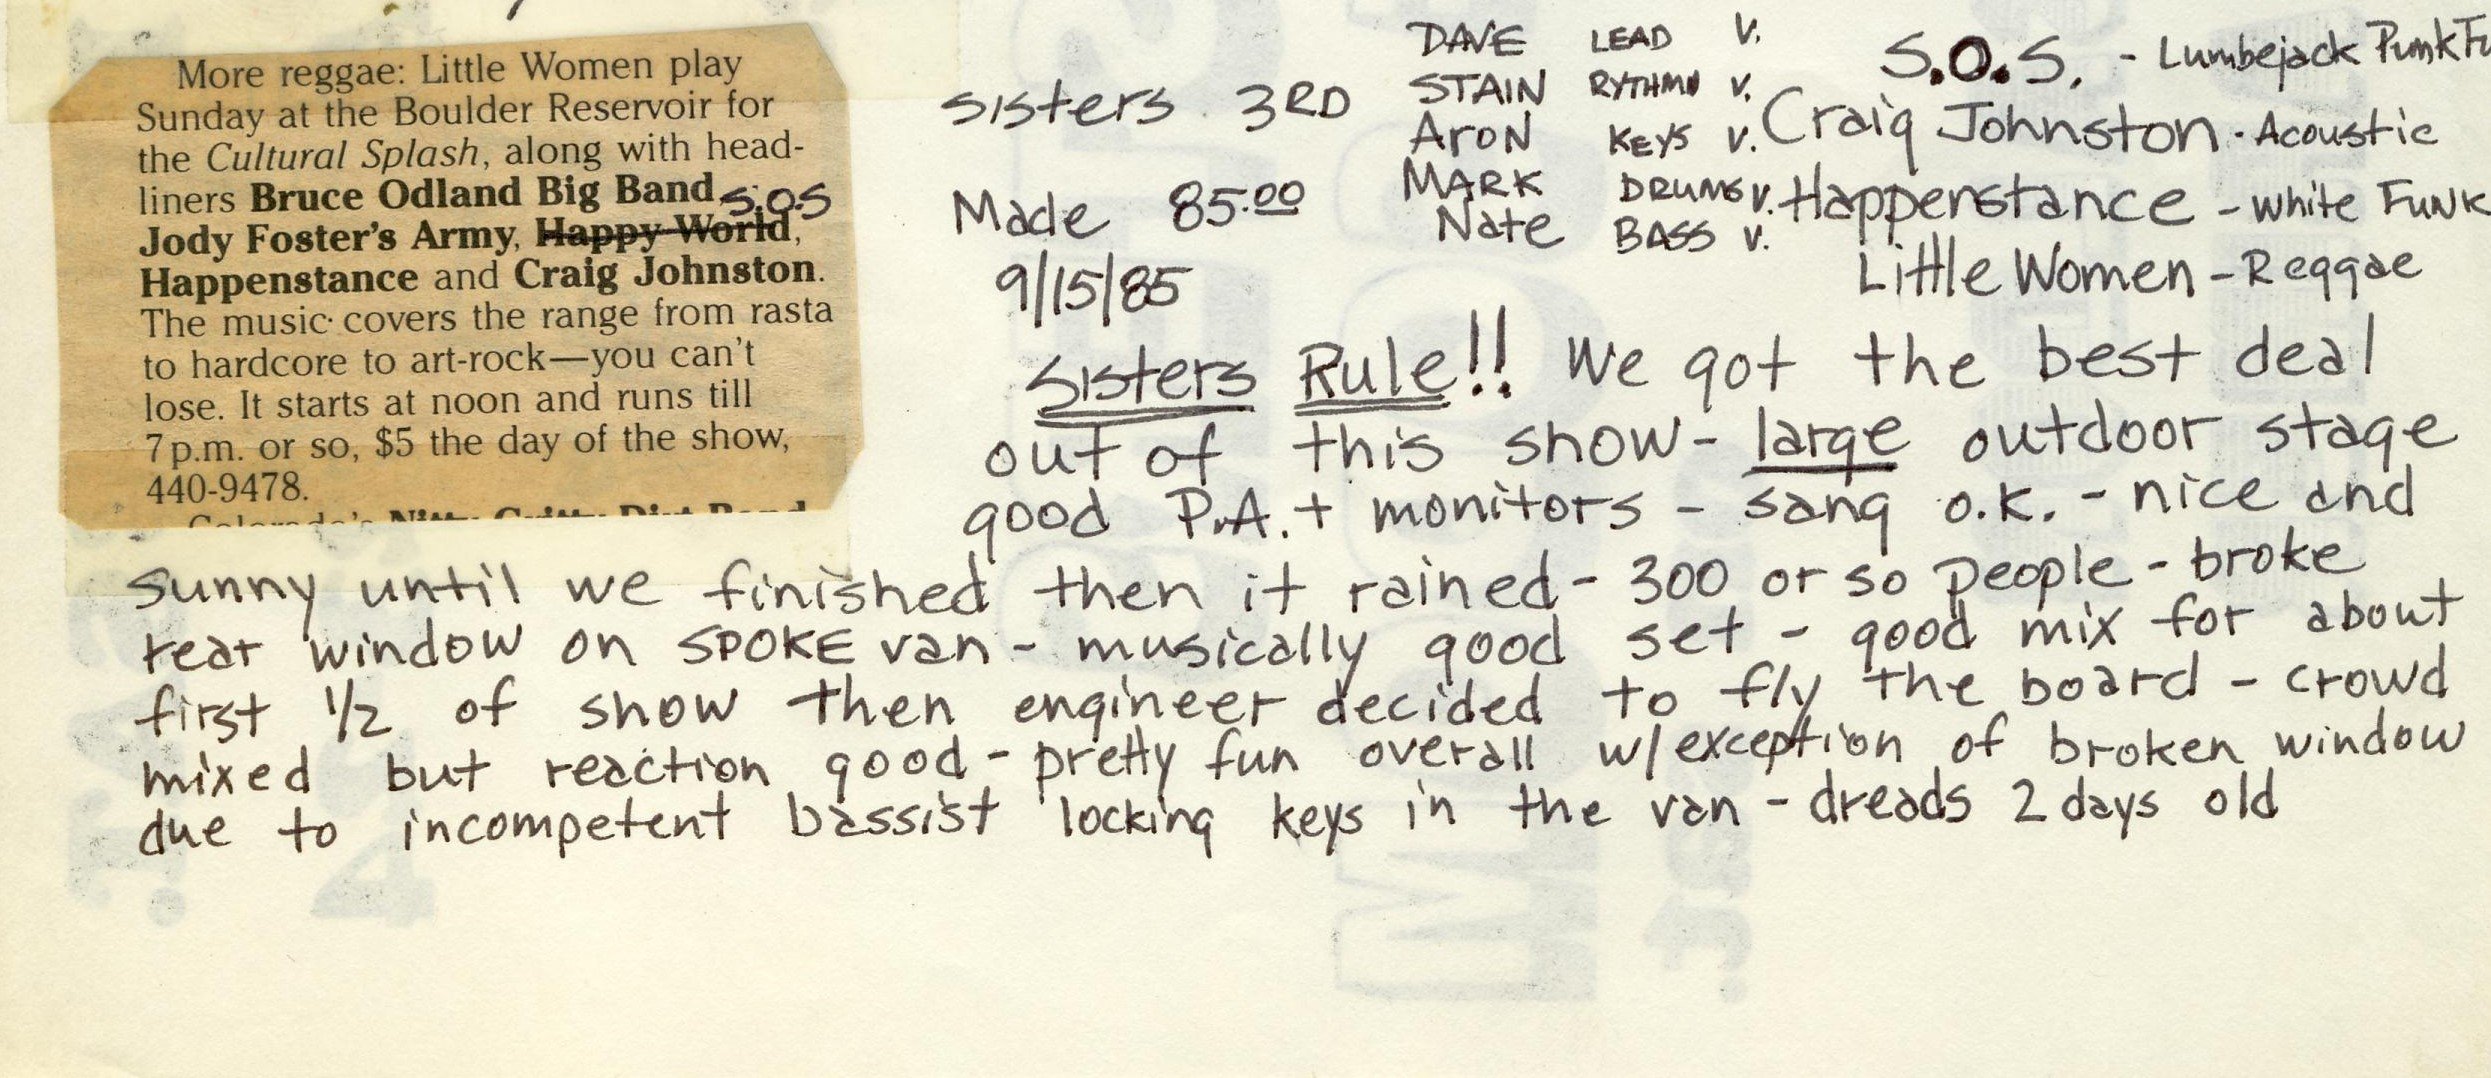 More reggae: Little Women play
Sunday at the Boulder Reservoir for
the Cultural Splash, along with head-
liners Bruce Odland Big Band,
S.O.S
Jody Foster's Army, Happy World,
Happenstance and Craig Johnston.
The music covers the range from rasta
to hardcore to art-rock—you can't
lose. It starts at noon and runs till
7 p.m. or so, $5 the day of the show,
440-9478.
Colorado's Nitty Gritty Dirt Band
Sisters 3RD
Made 85.00
9/15/85
DAVE LEAD V.
STAIN RYTHMN V.
ARON KEYS V.
MARK DRUMS V.
Nate BASS V.
S.O.S. - Lumbejack Punk Fu
Craig Johnston - Acoustic
Happenstance - white FUNK
Little Women - Reggae
Sisters Rule!! We got the best deal
out of this show - large outdoor stage
good P.A. + monitors - sang o.k. - nice and
sunny until we finished then it rained - 300 or so people - broke
rear window on SPOKE van - musically good set - good mix for about
first 1/2 of show then engineer decided to fly the board - crowd
mixed but reaction good - pretty fun overall w/exception of broken window
due to incompetent bassist locking keys in the van - dreads 2 days old